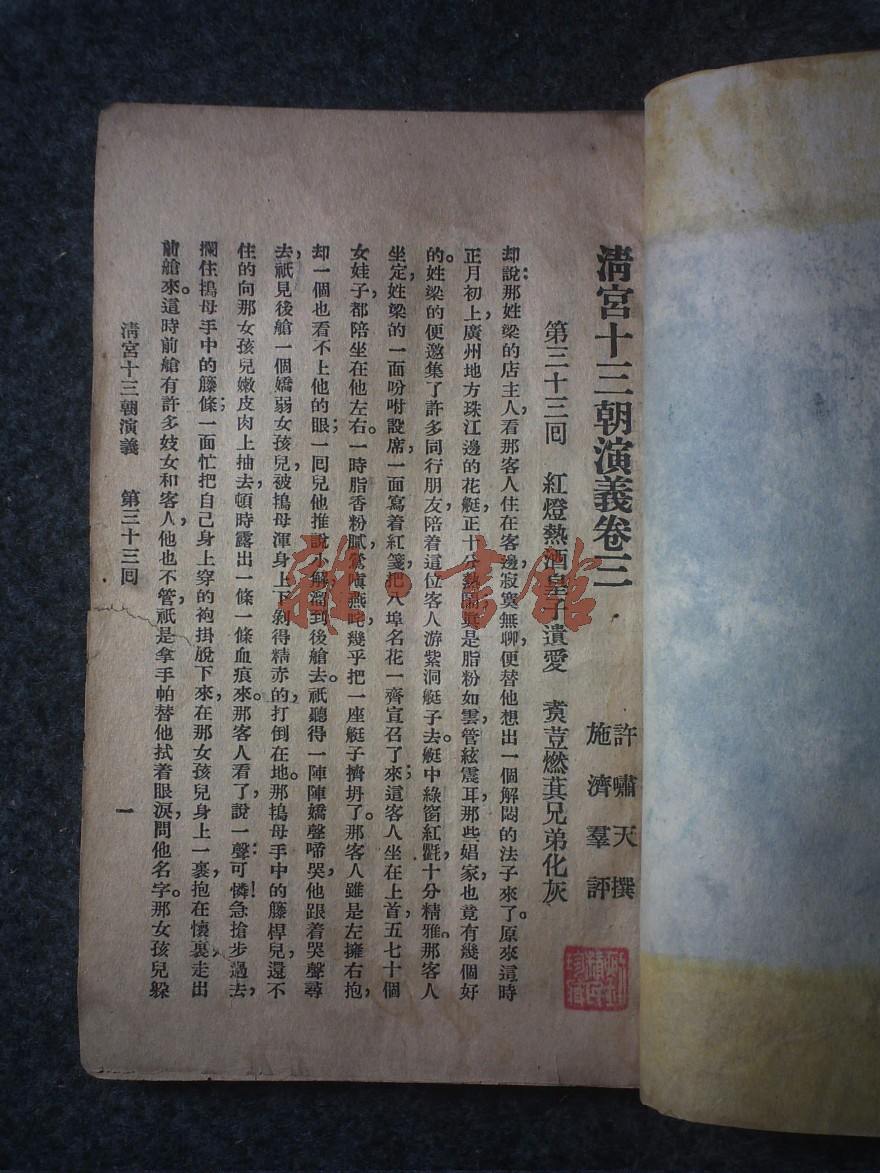 清宮十三朝演義卷三
許嘯天撰
施濟羣評
第三十三回 紅燈熱酒皇子遺愛 煑荳燃萁兄弟化灰
却說：那姓梁的店主人，看那客人住在客邊，寂寞無聊，便替他想出一個解悶的法子來。原來這時
正月初上，廣州地方珠江邊的花艇，正十分熱鬧，真是脂粉如雲，管絃震耳，那些娼家也竟有幾個好
的。姓梁的便邀集了許多同行朋友，陪着這位客人游紫洞艇子去，艇中綠窗紅氈，十分精雅。那客人
坐定，姓梁的一面吩咐設席，一面寫着紅箋，把八埠名花一齊宣召了來；這客人坐在上首，五七十個
女娃子，都陪坐在他左右。一時脂香粉膩，鶯嗔燕叱，幾乎把一座艇子擠坍了。那客人雖是左擁右抱，
却一個也看不上他的眼；一回兒他推說小解，溜到後艙去。祇聽得一陣陣嬌聲啼哭，他跟着哭聲尋
去，祇見後艙一個嬌弱女孩兒，被搗母渾身上下剝得精赤的，打倒在地。那搗母手中的籐桿兒，還不
住的向那女孩兒嫩皮肉上抽去，頓時露出一條一條血痕來。那客人看了，說一聲：可憐！急搶步過去，
攔住搗母手中的籐條；一面忙把自己身上穿的袍掛脫下來，在那女孩兒身上一裹，抱在懷裏，走出
前艙來。這時前艙有許多妓女和客人，他也不管，祇是拿手帕替他拭着眼淚，問他名字。那女孩兒躲
清宮十三朝演義 第三十三回 一
雜·書館